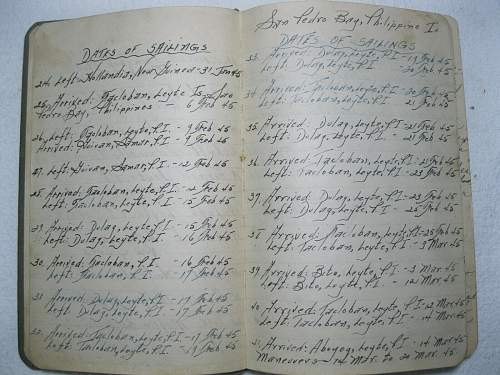 DATES OF SAILINGS
24. Left: Hollandia, New Guinea - 31 Jan 45
25. Arrived: Tacloban, Leyte Is.
Pedro Bay, Philippines - 6 Feb 45
26. Left: Tacloban, Leyte, P.I. - 9 Feb 45
Arrived: Guiuan, Samar, P.I. - 9 Feb 45
27. Left: Guiuan, Samar, P.I. - 12 Feb 45
28. Arrived: Tacloban, Leyte, P.I. - 12 Feb 45
Left: Tacloban, Leyte, P.I. - 15 Feb 45
29. Arrived: Dulag, Leyte, P.I. - 15 Feb 45
Left: Dulag, Leyte, P.I. - 16 Feb 45
30. Arrived: Tacloban, P.I. - 16 Feb 45
Left: Tacloban, P.I. - 17 Feb 45
31. Arrived: Dulag, Leyte, P.I. - 17 Feb 45
Left: Dulag, Leyte, P.I. - 17 Feb 45
32. Arrived: Tacloban, Leyte, P.I. - 17 Feb 45
Left: Tacloban, Leyte, P.I. - 19 Feb 45
San Pedro Bay, Philippine Is.
DATES OF SAILINGS
33. Arrived: Dulag, Leyte, P.I. - 19 Feb 45
Left: Dulag, Leyte, P.I. - 20 Feb 45
34. Arrived: Tacloban, Leyte, P.I. - 20 Feb 45
Left: Tacloban, Leyte, P.I. 21 Feb 45
35. Arrived: Dulag, Leyte, P.I. - 21 Feb 45
Left: Dulag, Leyte, P.I. - 21 Feb 45
36. Arrived: Tacloban, Leyte, P.I. - 21 Feb 45
Left: Tacloban, Leyte, P.I. - 23 Feb 45
37. Arrived: Dulag, Leyte, P.I. - 23 Feb 45
Left: Dulag, Leyte, P.I. - 25 Feb 45
38. Arrived: Tacloban, Leyte, P.I - 25 Feb 45
Left: Tacloban, Leyte, P.I. - 3 Mar 45
39. Arrived: Bito, Leyte, P.I. - 3 Mar. 45
Left: Bito, Leyte, P.I. - 12 Mar 45
40. Arrived: Tacloban, Leyte, P.I. - 12 Mar 45
Left: Tacloban, Leyte, P.I. - 14 Mar. 45
41. Arrived: Abuyog, Leyte, P.I. - 14 Mar 45
Maneuvers - 14 Mar. to 20 Mar. 45